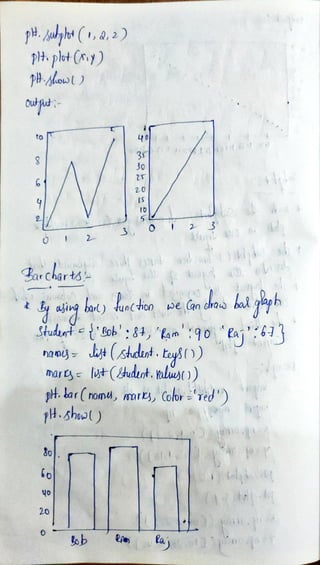 plt. subplot (1, 2, 2)
plt. plot (x, y)
plt. show ( )
output :-
10
8
6
4
2
0 1 2 3
40
35
30
25
20
15
10
5
0 1 2 3
Bar charts :-
* By using bar( ) function we can draw bar graph
Student = { 'Bob' : 87, 'Ram' : 90 'Raj' : 67 }
names = list (student. keys( ) )
marks = list (student. values( ) )
plt. bar ( names, marks, color = 'red' )
plt. show ( )
80
60
40
20
0
Bob Ram Raj